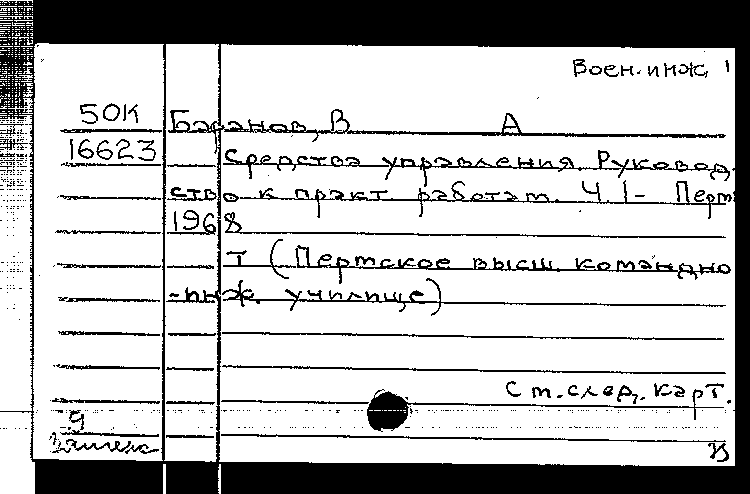 Воен. инж. 1
50К Баранов, В А
16623 Средства управления. Руковод-
ство к практ работам. Ч. 1 - Перм
1968
т (Пермское высш. командно
-инж. училище)
См. след. карт.
9